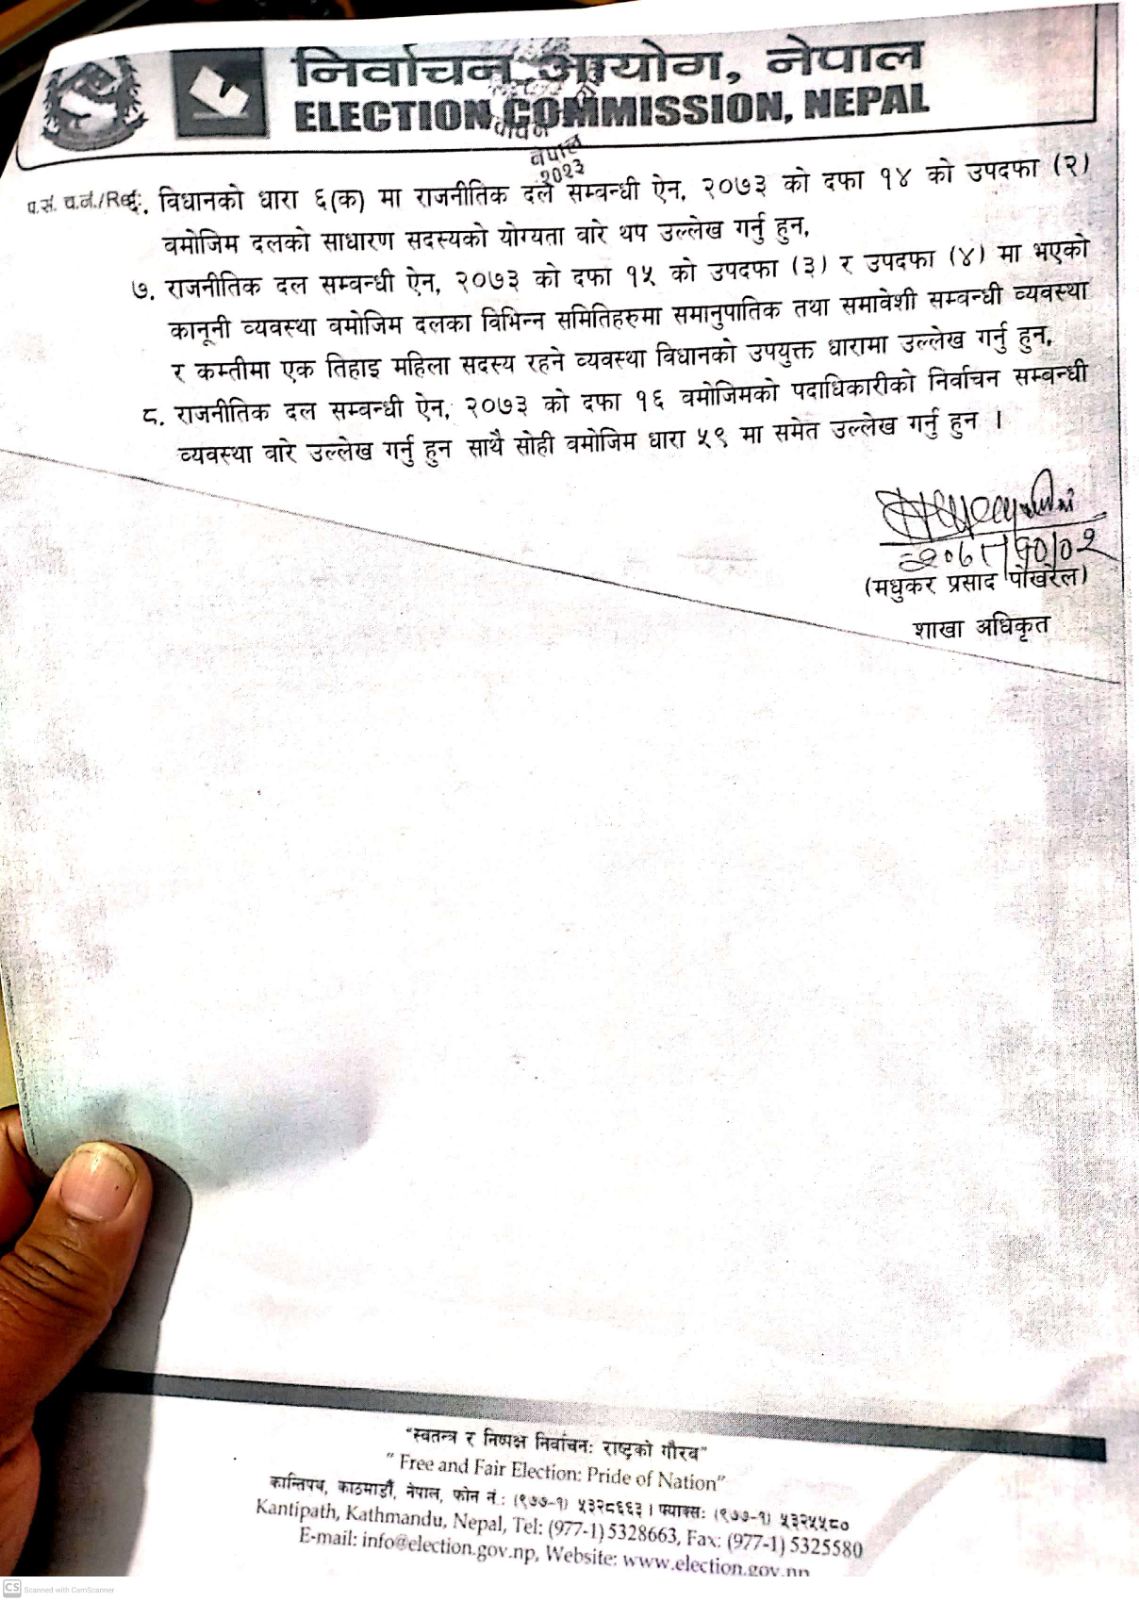 निर्वाचन आयोग, नेपाल
ELECTION COMMISSION, NEPAL
नेपाल
२०२३
प.सं. च.नं./Ref: विधानको धारा ६(क) मा राजनीतिक दल सम्बन्धी ऐन, २०७३ को दफा १४ को उपदफा (२)
वमोजिम दलको साधारण सदस्यको योग्यता वारे थप उल्लेख गर्नु हुन,
७. राजनीतिक दल सम्बन्धी ऐन, २०७३ को दफा १५ को उपदफा (३) र उपदफा (४) मा भएको
कानूनी व्यवस्था वमोजिम दलका विभिन्न समितिहरुमा समानुपातिक तथा समावेशी सम्बन्धी व्यवस्था
र कम्तीमा एक तिहाइ महिला सदस्य रहने व्यवस्था विधानको उपयुक्त धारामा उल्लेख गर्नु हुन,
८. राजनीतिक दल सम्बन्धी ऐन, २०७३ को दफा १६ वमोजिमको पदाधिकारीको निर्वाचन सम्बन्धी
व्यवस्था वारे उल्लेख गर्नु हुन साथै सोही वमोजिम धारा ५९ मा समेत उल्लेख गर्नु हुन ।
(मधुकर प्रसाद पोखरेल)
शाखा अधिकृत
"स्वतन्त्र र निष्पक्ष निर्वाचनः राष्ट्रको गौरव"
" Free and Fair Election: Pride of Nation"
कान्तिपथ, काठमाडौं, नेपाल, फोन नं.: (९७७-१) ५३२८६६३ । फ्याक्सः (९७७-१) ५३२५५८०
Kantipath, Kathmandu, Nepal, Tel: (977-1) 5328663, Fax: (977-1) 5325580
E-mail: info@election.gov.np, Website: www.election.gov.np
CS Scanned with CamScanner